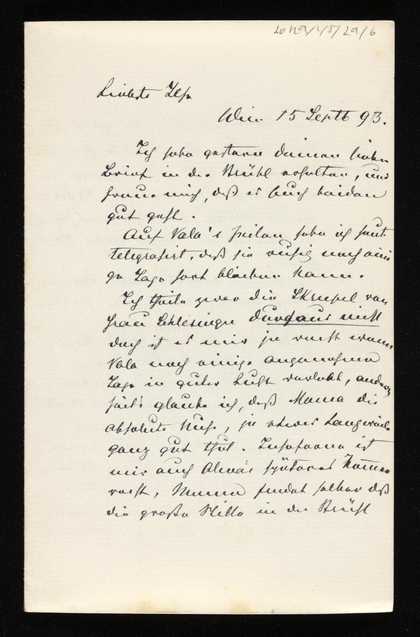 Liebste Ilse
Wien 15 Septb 93.
Ich habe gestern deinen lieben
Brief in der Brühl erhalten, und
freue mich, daß es Euch beiden
gut geht.
Auf Vala's Zeilen habe ich heute
telegrafirt, daß sie ruhig noch einige
Tage fort bleiben kann.
Ich theile zwar die Skrupel von
Frau Schlesinger durchaus nicht
doch ist es mir ja recht wenn
Vala noch einige angenehme
Tage in guter Luft verlebt, andrer
seits glaube ich, daß Mama die
absolute Ruhe, ja etwas Langweile
ganz gut thut. Insoferne ist
mir auch späteres Kommen
recht, Mama findet selber daß
die große Stille in der Brühl